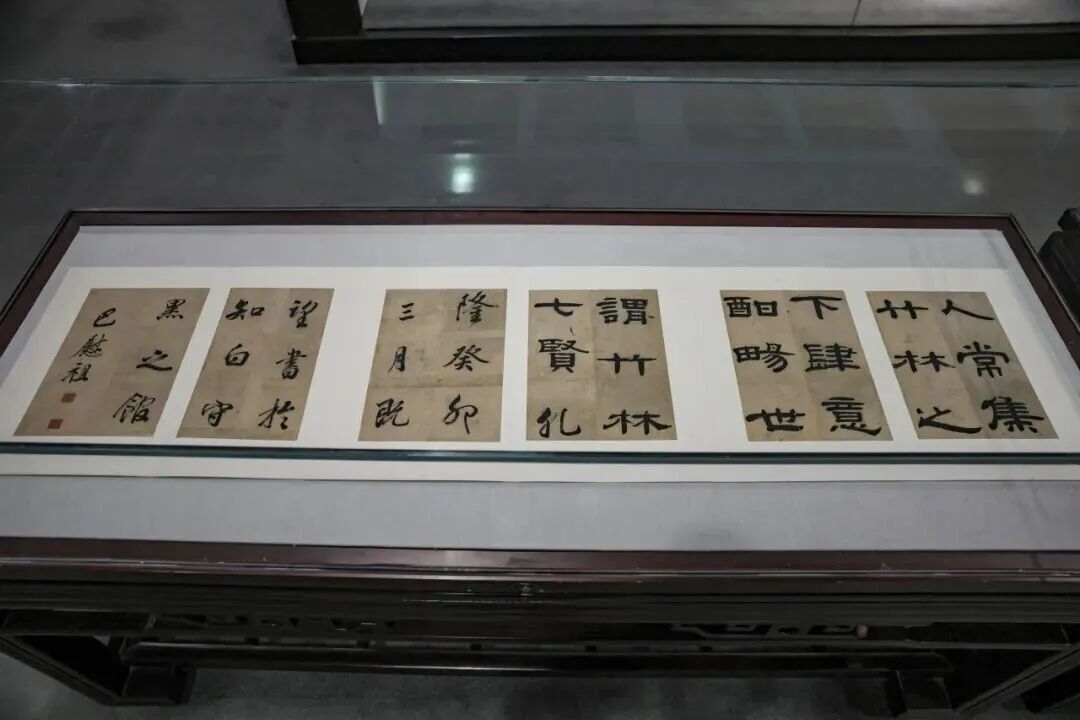 人常集
竹林之
下肆意
酣畼世
謂竹林
七賢孔
隆癸卯
三月既
望書於
知白守
黑之館
巴慰祖